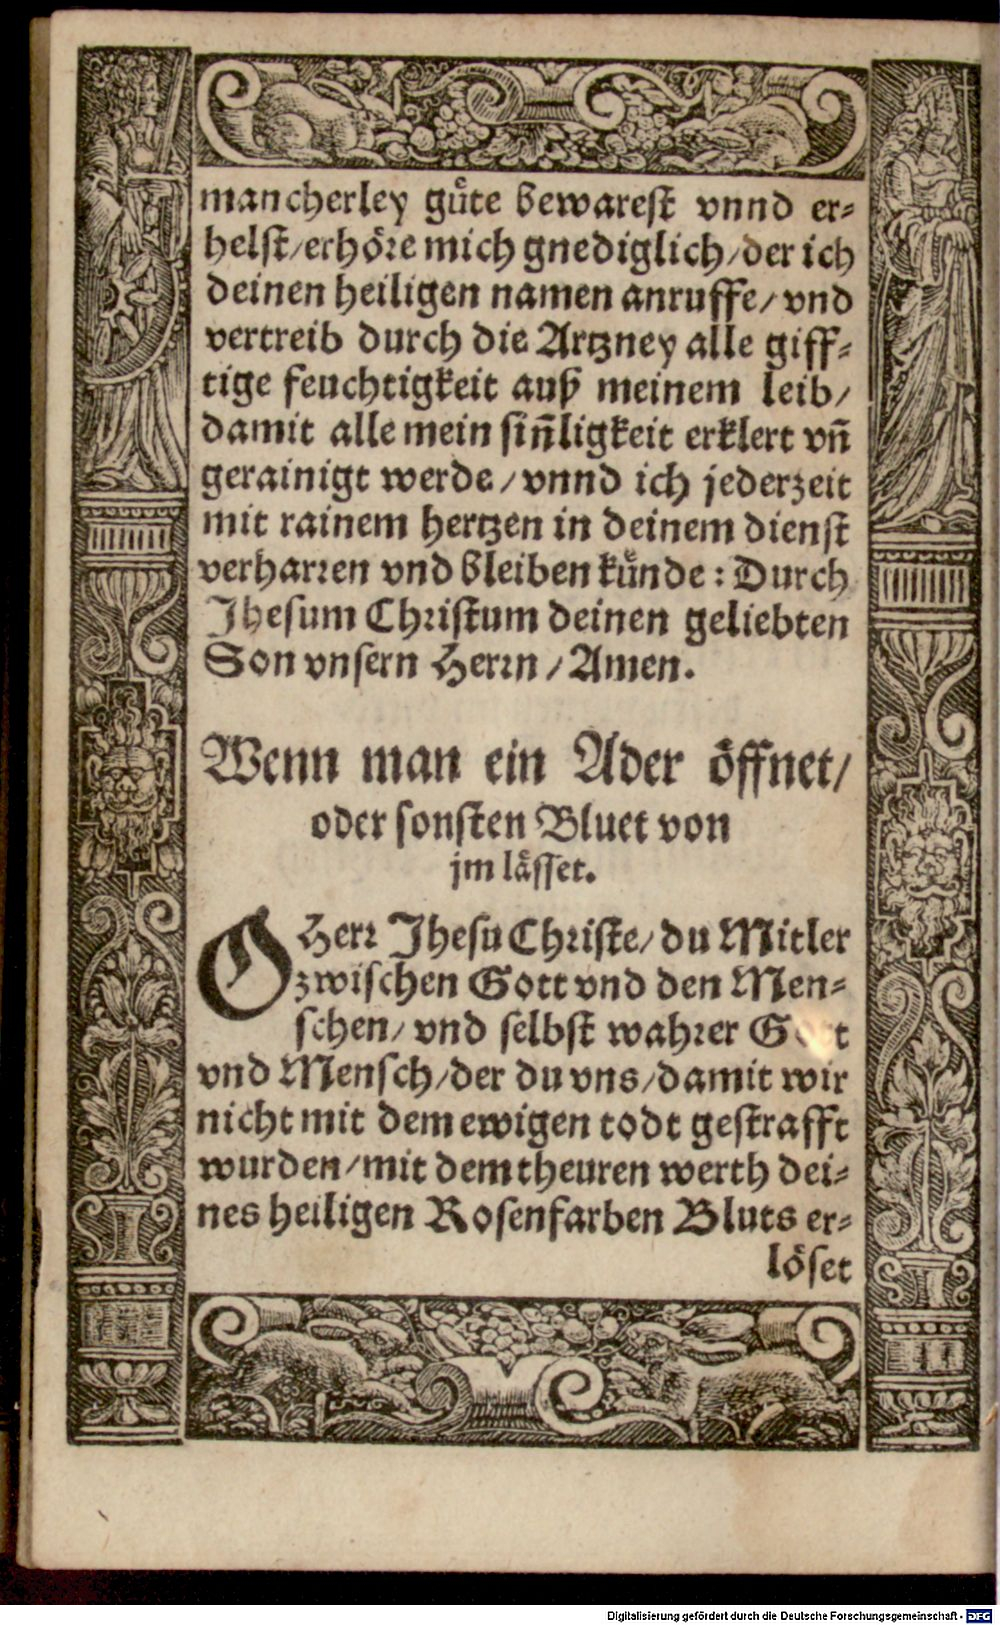 mancherley guͤte bewarest vnnd er-
helst/erhoͤre mich gnediglich/der ich
deinen heiligen namen anruffe/vnd
vertreib durch die Artzney alle giff-
tige feuchtigkeit auß meinem leib/
damit alle mein sin̄ligkeit erklert vn̄
gerainigt werde/vnnd ich jederzeit
mit rainem hertzen in deinem dienst
verharren vnd bleiben kuͤnde: Durch
Jhesum Christum deinen geliebten
Son vnsern Herrn/Amen.
Wenn man ein Ader oͤffnet/
oder sonsten Bluet von
jm laͤsset.
O Herr Jhesu Christe/du Mitler
zwischen Gott vnd den Men-
schen/vnd selbst wahrer Gott
vnd Mensch/der du vns/damit wir
nicht mit dem ewigen todt gestrafft
wurden/mit dem theuren werth dei-
nes heiligen Rosenfarben Bluts er-
loͤset
Digitalisierung gefördert durch die Deutsche Forschungsgemeinschaft - DFG